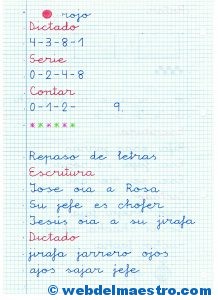 rojo
Dictado
4-3-8-1
Serie
0-2-4-8
Contar
0-1-2-         9.
******
Repaso de letras
Escritura
Jose oia a Rosa
Su jefe es chofer
Jesús oia a su jirafa
Dictado
jirafa jarrero ojos
ajos sajar jefe
© webdelmaestro.com